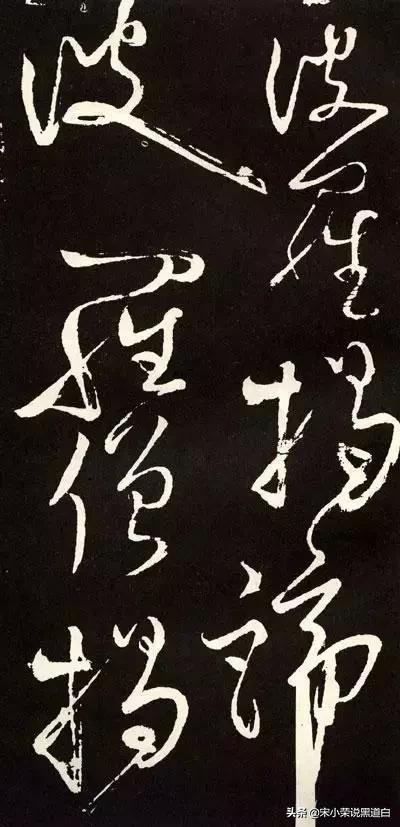 波羅揭諦
波羅僧揭
头条 @宋小荣说黑道白